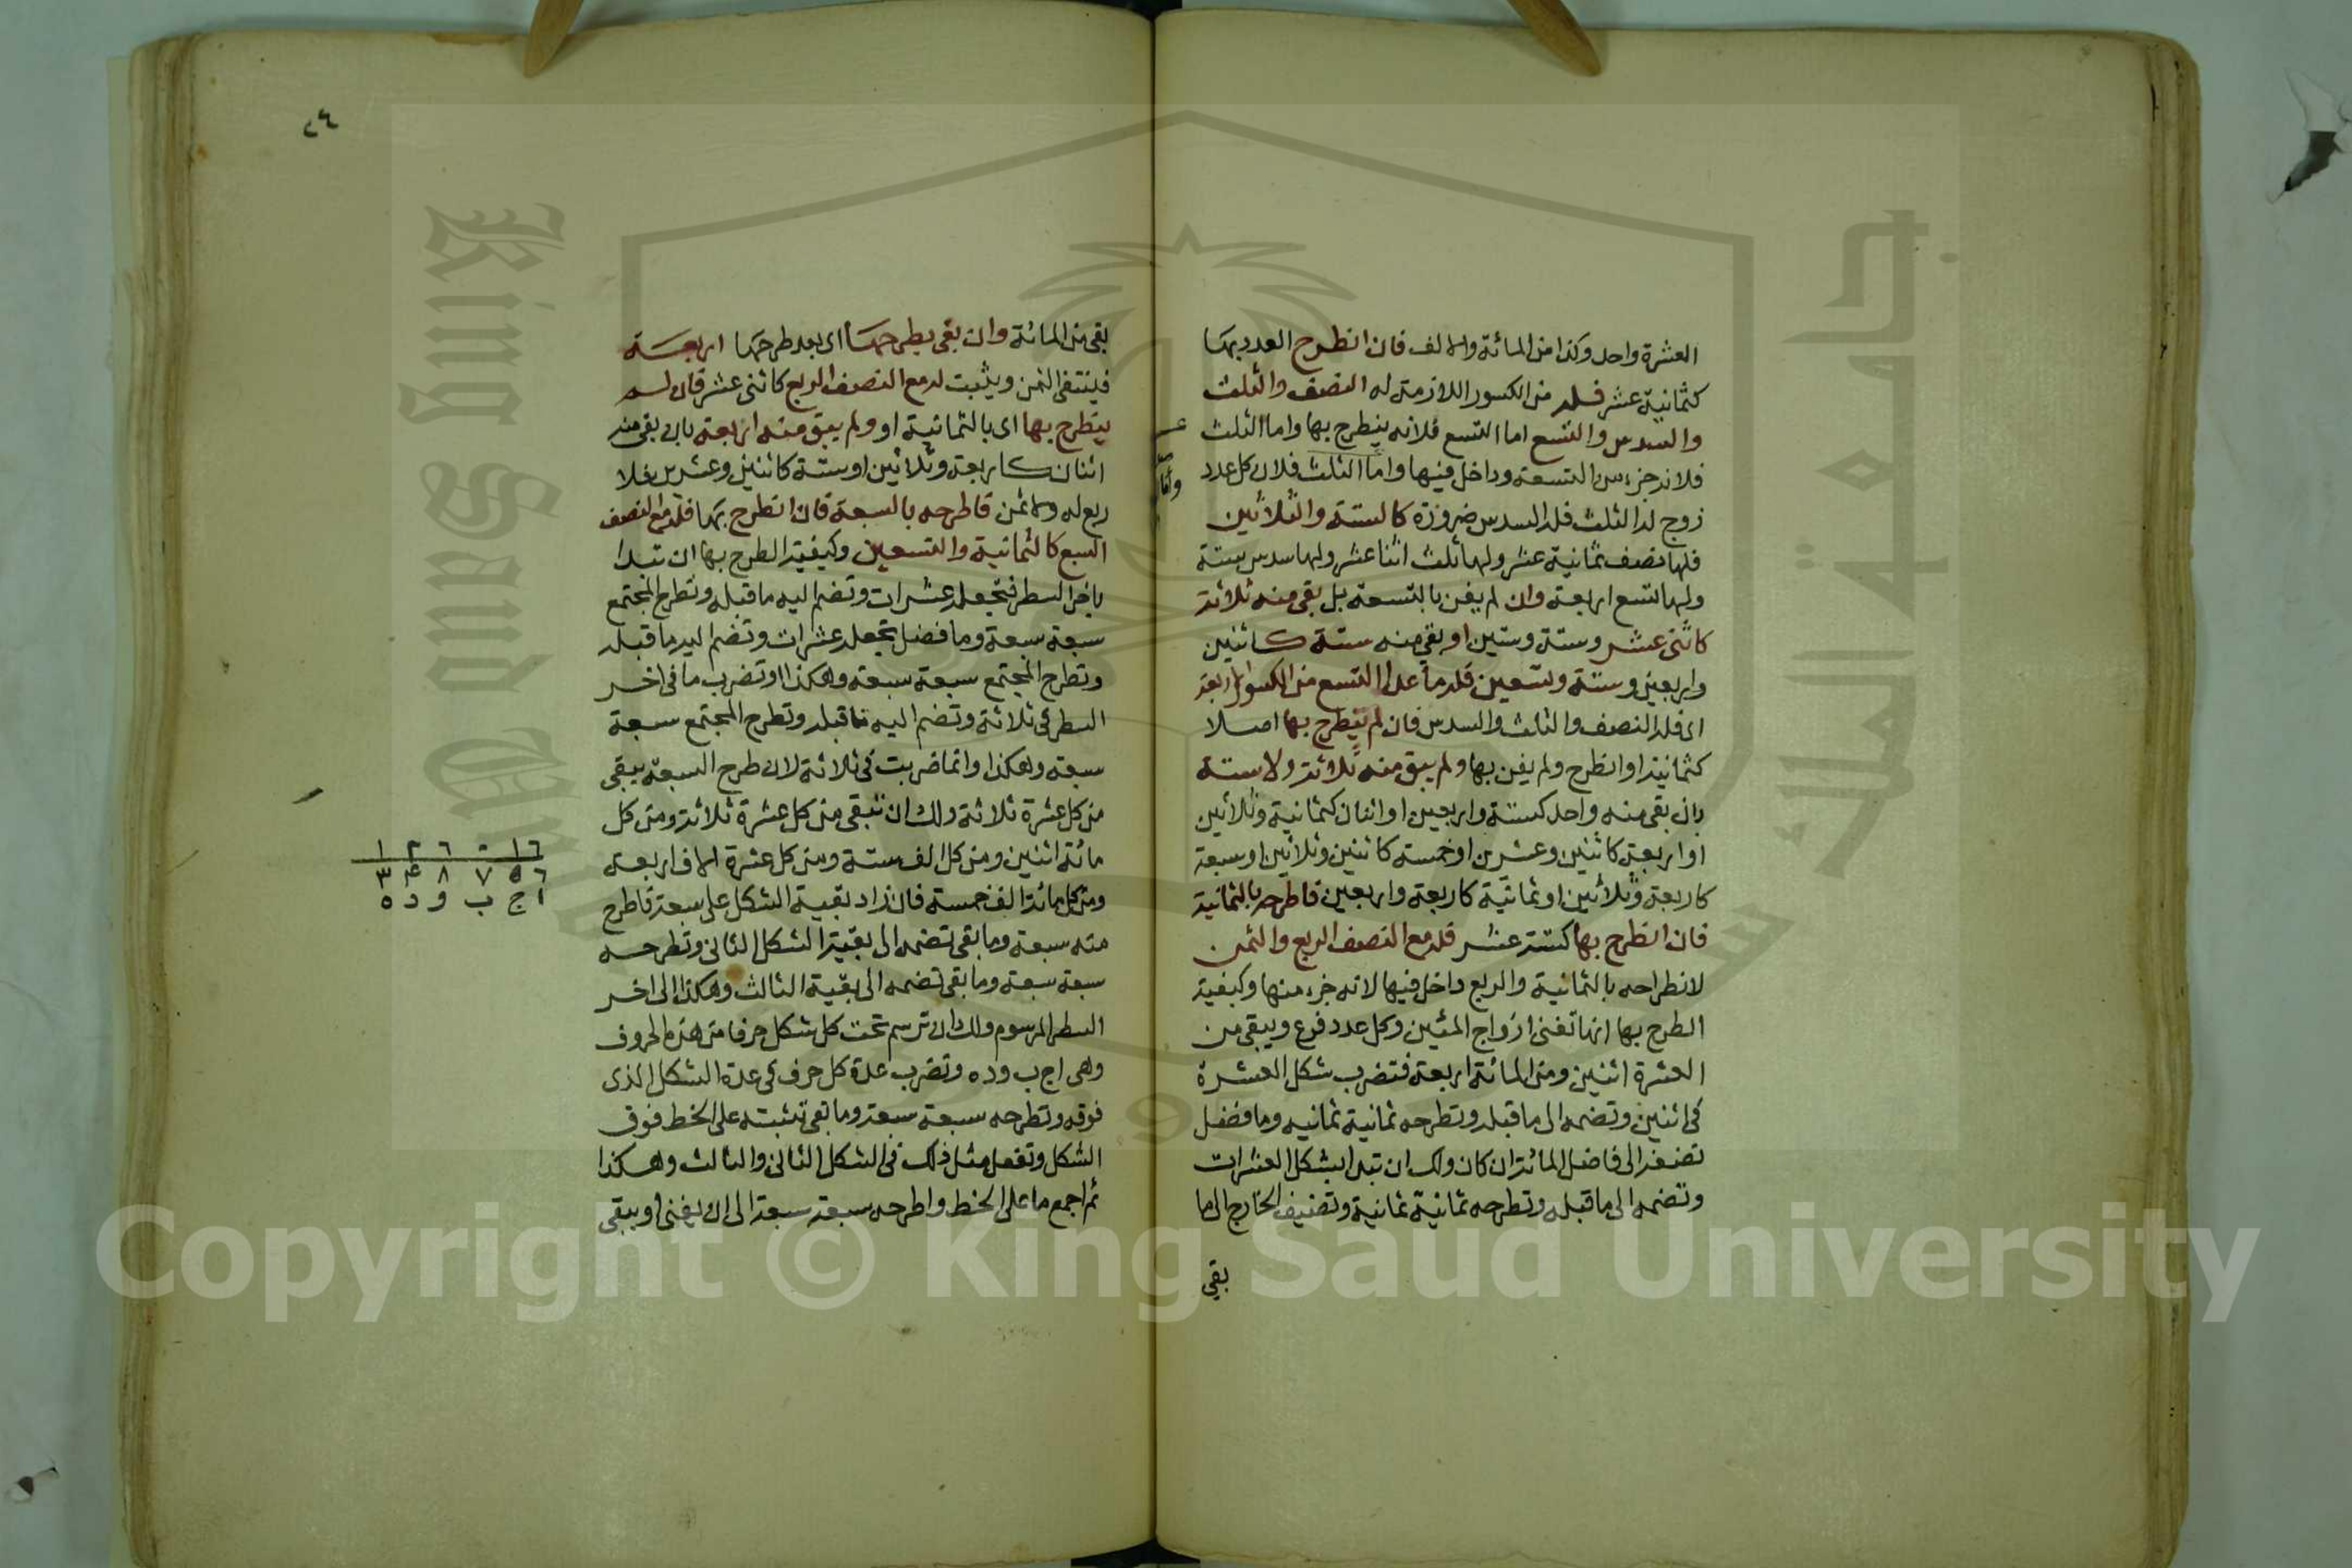 العشرة واحد وكذا من المائة والالف فان انطرح العدد بها
كثمانية عشر فله من الكسور اللازمة له النصف والثلث
والسدس والتسع اما التسع فلانه ينطرح بها واما الثلث
فلانه جزء من التسعة وداخل فيها واما الثلث فلان كل عدد
زوج له الثلث فله السدس ضرورة كالستة والثلاثين
فلها نصف ثمانية عشر ولها ثلث اثنا عشر ولها سدس ستة
ولها تسع اربعة وان لم يفن بالتسعة بل بقى منه ثلاثة
كاثنى عشر وستة وستين او بقى منه ستة كاثنين
واربعين وستة وتسعين فله ما عدا التسع من الكسور الاربعة
اى فله النصف والثلث والسدس فان لم ينطرح بها اصلا
كثمانية او انطرح ولم يفن بها ولم يبق منه ثلاثة ولا ستة
بان بقى منه واحد كستة واربعين او اثنان كثمانية وثلاثين
او اربعة كاثنين وعشرين او خمسة كاثنين وثلاثين او سبعة
كاربعة وثلاثين او ثمانية كاربعة واربعين فاطرحه بالثمانية
فان انطرح بها كستة عشر فله مع النصف الربع والثمن
لانطراحه بالثمانية والربع داخل فيها لانه جزء منها وكيفية
الطرح بها انها تفنى ازواج المئين وكل عدد فرع ويبقى من
العشرة اثنين ومن المائة اربعة فتضرب شكل العشرة
فى اثنين وتضمه الى ما قبله وتطرحه ثمانية ثمانيه وما فضل
تضفه الى فاضل المائة ان كان ولك ان تبدا بشكل العشرات
وتضمه الى ما قبله وتطرحه ثمانية ثمانية وتضيف الخارج الى ما
بقى
واما
٢٤
بقى من المائة وان بقى بطرحها اى بعد طرحها اربعة
فينتفى الثمن ويثبت له مع النصف الربع كاثنى عشر فان لم
ينطرح بها اى بالثمانية او ولم يبق منه اربعة بان بقى منه
اثنان كاربعة وثلاثين او ستة كاثنين وعشرين فلا
ربع له ولا ثمن فاطرحه بالسبعة فان انطرح بها فله مع النصف
السبع كالثمانية والتسعين وكيفية الطرح بها ان تبدا
باخر السطر فتجعله عشرات وتضم اليه ما قبله وتطرح المجتمع
سبعة سبعة وما فضل تجعله عشرات وتضم اليه ما قبله
وتطرح المجتمع سبعة سبعة وهكذا او تضرب ما فى اخر
السطر فى ثلاثة وتضم اليه ما قبله وتطرح المجتمع سبعة
سبعة وهكذا وانما ضربت فى ثلاثة لان طرح السبعة يبقى
من كل عشرة ثلاثة ولك ان تبقى من كل عشرة ثلاثة ومن كل
مائة اثنين ومن كل الف ستة ومن كل عشرة الاف اربعة
ومن كل مائة الف خمسة فان زاد بقية الشكل على سبعة فاطرح
منه سبعة وما بقى تضمه الى بقية الشكل الثانى وتطرحه
سبعة سبعة وما بقى تضمه الى بقية الثالث وهكذا الى اخر
السطر المرسوم ولك ان ترسم تحت كل شكل حرفا من هذه الحروف
وهى اج ب وده وتضرب عدة كل حرف فى عدة الشكل الذى
فوقه وتطرحه سبعة سبعة وما بقى تثبته على الخط فوق
الشكل وتفعل مثل ذلك فى الشكل الثانى والثالث وهكذا
ثم اجمع ما على الخط واطرحه سبعة سبعة الى ان يفنى او يبقى
١ ٢ ٦ ٠ ١ ٦
٣ ٤ ٨ ٧ ٥ ٦
ا ج ب و د ه
Copyright © King Saud University
King Saud University
جامعة الملك سعود